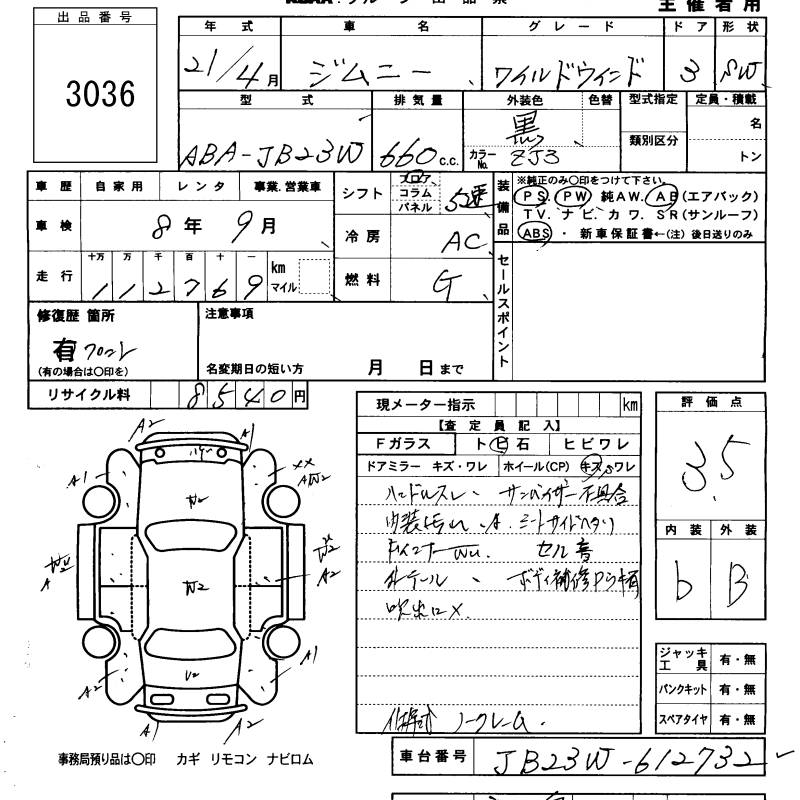 主催者用
出品番号
3036
年式 車名 グレード ドア 形状
21/4月 ジムニー ワイルドウィンド 3 SW
型式 排気量 外装色 色替 型式指定 定員・積載
ABA-JB23W 660c.c. 黒 カラーNo. ZJ3 類別区分 名
トン
車歴 自家用 レンタ 事業.営業車
車検 8年9月
走行 十万 万 千 百 十 一 km マイル
112769
シフト フロア コラム パネル 5速
冷房 AC
燃料 G
装備品 ※純正のみ〇印をつけて下さい。
PS. PW 純AW. AB(エアバック)
TV. ナビ. カワ. SR(サンルーフ)
ABS ・ 新車保証書←(注) 後日送りのみ
セールスポイント
修復歴 箇所
有 フロント
(有の場合は〇印を)
注意事項
名変期日の短い方 月 日まで
リサイクル料 8540円
現メーター指示 km
【査定員記入】
Fガラス トビ石 ヒビワレ
ドアミラー キズ・ワレ ホイール(CP) キズ ワレ
ハンドルスレ、サンバイザー不具合
内装
セル音
ボディ補修
吹出口×
ノークレーム.
評価点
3.5
内装 外装
b B
ジャッキ工具 有・無
パンクキット 有・無
スペアタイヤ 有・無
A2 A1
A1 ××
AW2
W2
W2
W2 A W2 A2
A1 A2
V2
A1 A2
事務局預り品は〇印 カギ リモコン ナビロム
車台番号 JB23W-612732